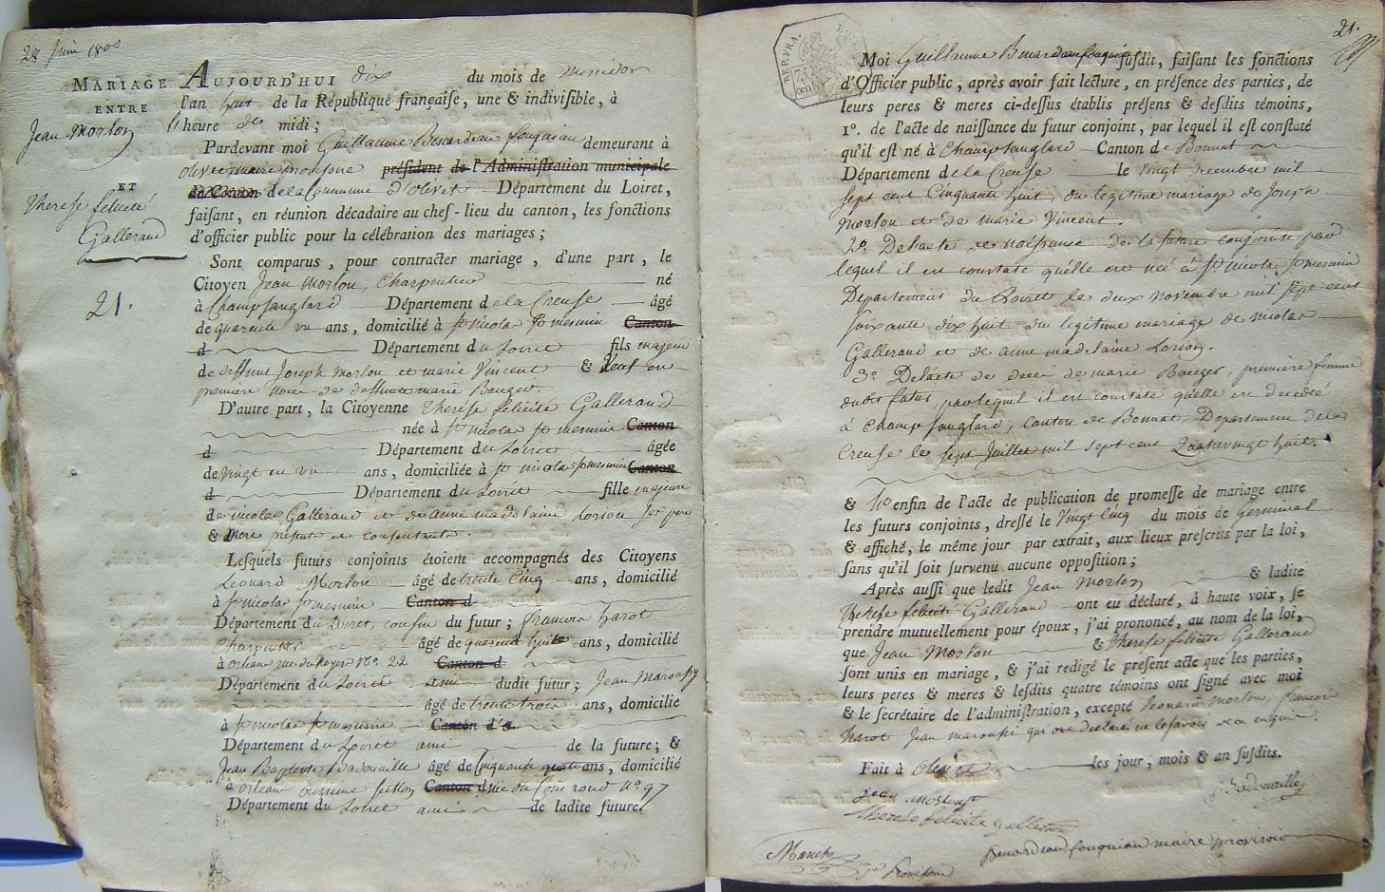 MARIAGE
ENTRE
Jean Morlon
ET
Therese felicité
Galleraud
21.
AUJOURD'HUI dix du mois de messidor
l'an huit de la République françaiſe, une & indiviſible, à
heure midi;
Pardevant moi Guillaume demeurant à
olivet maire proviſoire préſident de l'Adminiſtration municipale
de la Commune d'olivet Département du Loiret,
faiſant, en réunion décadaire au chef-lieu du canton, les fonctions
d'officier public pour la célébration des mariages;
Sont comparus, pour contracter mariage, d'une part, le
Citoyen Jean Morlon, Charpentier né
à Champſanglard Département de la Creuſe âgé
de quarente un ans, domicilié à St nicolas St mesmin Canton
d Département du Loiret fils majeur
de deffunt Joseph Morlon et marie Vincent & Veuf en
premiere noce de deffunte marie
D'autre part, la Citoyenne therese felicité Galleraud
née à St nicolas St mesmin Canton
d Département du Loiret âgée
de vingt et un ans, domiciliée à St nicolas St mesmin Canton
d Département du Loiret fille majeure
de nicolas Galleraud et de anne madelaine Lorion ſes pere
& Mere préſent et conſentent.
Leſquels futurs conjoints étoient accompagnés des Citoyens
Léonard Morlon âgé de trente cinq ans, domicilié
à St nicolas St mesmin Canton d
Département du Loiret, couſin du futur; francois harot
charpentier âgé de quarente huite ans, domicilié
à orléans rue No. 22 Canton d
Département du Loiret ami dudit futur; Jean
âgé de trente trois ans, domicilié
à St nicolas St mesmin Canton d
Département du Loiret ami de la future; &
Jean Baptiste Badouville âgé de Cinquante quatre ans, domicilié
à orleans Canton d rue du four No 97
Département du Loiret ami de ladite future
21.
Moi Guillaume ſuſdit, faiſant les fonctions
d'Officier public, après avoir fait lecture, en préſence des parties, de
leurs peres & meres ci-deſſus établis préſens & deſdits témoins,
1°. de l'acte de naiſſance du futur conjoint, par lequel il eſt conſtaté
qu'il eſt né à Champſanglard Canton de Bonnat
Département de la Creuſe le vingt decembre mil
ſept cent Cinquante huit, du legitime mariage de Joseph
Morlon et de marie Vincent.
2°. De l'acte de naiſſance de la future conjointe par
lequel il est constaté qu'elle est née à St nicolas St mesmin
Departement du Loiret le deux novembre mil ſept cent
ſoixante dix huit du legitime mariage de nicolas
Galleraud et de anne madelaine Lorion.
3° De l'acte de decè de marie premiere femme
dudit futur, par lequel il est constaté qu'elle est decedée
à Champſanglard, Canton de Bonnat Departement de la
Creuse le ſept Juillet mil ſept cent quatrevingt huit.
& enfin de l'acte de publication de promeſſe de mariage entre
les futurs conjoints, dreſſé le Vingt Cinq du mois de germinal
& affiché, le même jour par extrait, aux lieux preſcrits par la loi,
ſans qu'il ſoit ſurvenu aucune oppoſition;
Après auſſi que ledit Jean Morlon & ladite
therese felicité Galleraud ont eu déclaré, à haute voix, ſe
prendre mutuellement pour époux, j'ai prononcé, au nom de la loi,
que Jean Morlon & therese felicité Galleraud
ſont unis en mariage, & j'ai redigé le preſent acte que les parties,
leurs peres & meres & leſdits quatre témoins ont ſigné avec moi
& le ſecrétaire de l'adminiſtration, excepté Leonard Morlon, francois
harot Jean qui ont declaré ne le ſavoir
Fait à olivet les jour, mois & an ſuſdits.
Badouville
therese felicité galleraud
maire proviſoire